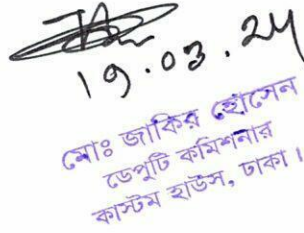 19.03.24
মোঃ জাকির হোসেন
ডেপুটি কমিশনার
কাস্টম হাউস, ঢাকা।